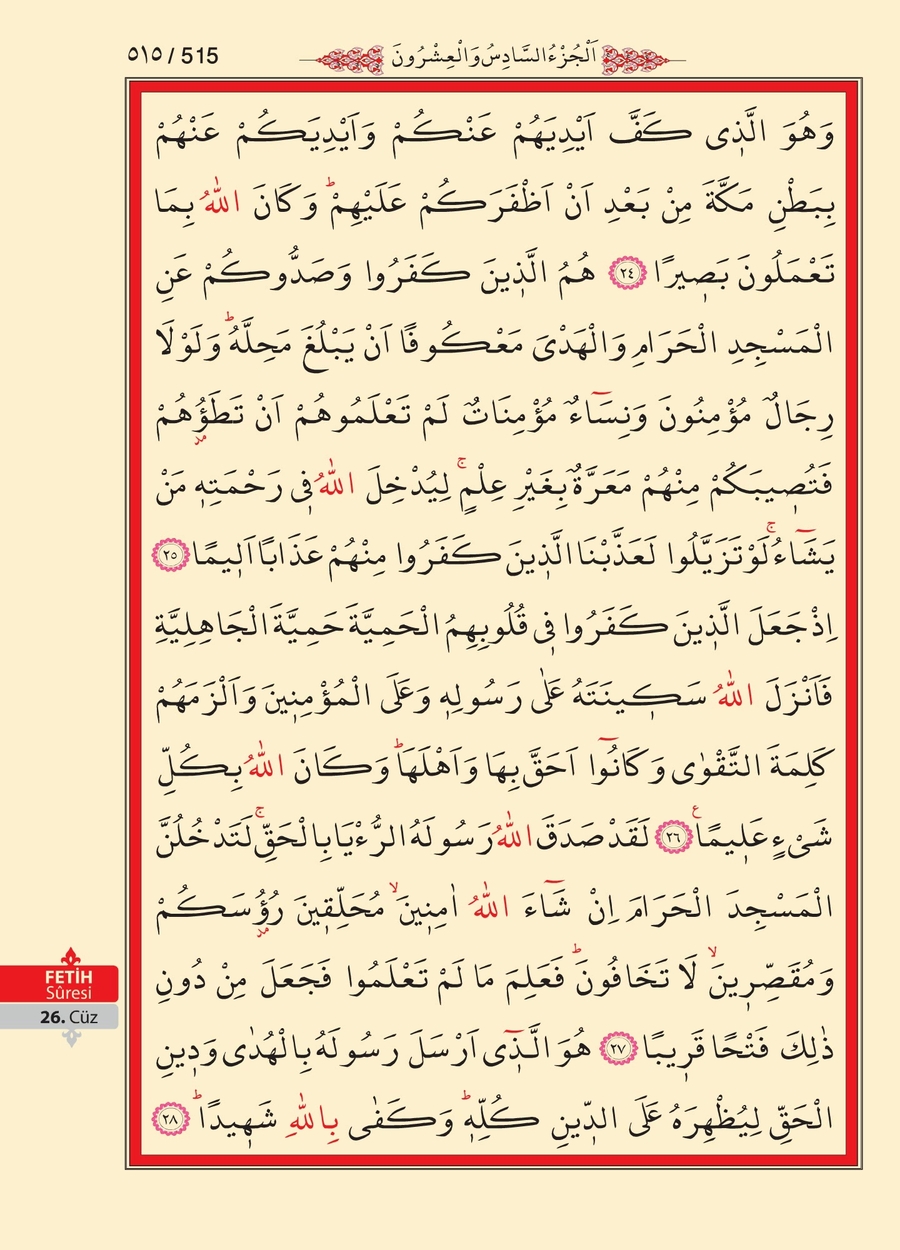 ٥١٥ / 515
اَلْجُزْءُ السَّادِسُ وَالْعِشْرُونَ
وَهُوَ الَّذ۪ى كَفَّ اَيْدِيَهُمْ عَنْكُمْ وَاَيْدِيَكُمْ عَنْهُمْ
بِبَطْنِ مَكَّةَ مِنْ بَعْدِ اَنْ اَظْفَرَكُمْ عَلَيْهِمْۜ وَكَانَ اللّٰهُ بِمَا
تَعْمَلُونَ بَص۪يرًا ﴿٢٤﴾ هُمُ الَّذ۪ينَ كَفَرُوا وَصَدُّوكُمْ عَنِ
الْمَسْجِدِ الْحَرَامِ وَالْهَدْىَ مَعْكُوفًا اَنْ يَبْلُغَ مَحِلَّهُۜ وَلَوْلَا
رِجَالٌ مُؤْمِنُونَ وَنِسَٓاءٌ مُؤْمِنَاتٌ لَمْ تَعْلَمُوهُمْ اَنْ تَطَؤُ۫هُمْ
فَتُص۪يبَكُمْ مِنْهُمْ مَعَرَّةٌ بِغَيْرِ عِلْمٍۚ لِيُدْخِلَ اللّٰهُ ف۪ى رَحْمَتِه۪ مَنْ
يَشَٓاءُۚ لَوْ تَزَيَّلُوا لَعَذَّبْنَا الَّذ۪ينَ كَفَرُوا مِنْهُمْ عَذَابًا اَل۪يمًا ﴿٢٥﴾
اِذْ جَعَلَ الَّذ۪ينَ كَفَرُوا ف۪ى قُلُوبِهِمُ الْحَمِيَّةَ حَمِيَّةَ الْجَاهِلِيَّةِ
فَاَنْزَلَ اللّٰهُ سَك۪ينَتَهُ عَلٰى رَسُولِه۪ وَعَلَى الْمُؤْمِن۪ينَ وَاَلْزَمَهُمْ
كَلِمَةَ التَّقْوٰى وَكَانُٓوا اَحَقَّ بِهَا وَاَهْلَهَاۜ وَكَانَ اللّٰهُ بِكُلِّ
شَىْءٍ عَل۪يمًا ﴿٢٦﴾ لَقَدْ صَدَقَ اللّٰهُ رَسُولَهُ الرُّءْيَا بِالْحَقِّۚ لَتَدْخُلُنَّ
الْمَسْجِدَ الْحَرَامَ اِنْ شَٓاءَ اللّٰهُ اٰمِن۪ينَۙ مُحَلِّق۪ينَ رُؤُ۫سَكُمْ
وَمُقَصِّر۪ينَۙ لَا تَخَافُونَۜ فَعَلِمَ مَا لَمْ تَعْلَمُوا فَجَعَلَ مِنْ دُونِ
ذٰلِكَ فَتْحًا قَر۪يبًا ﴿٢٧﴾ هُوَ الَّذ۪ٓى اَرْسَلَ رَسُولَهُ بِالْهُدٰى وَد۪ينِ
الْحَقِّ لِيُظْهِرَهُ عَلَى الدّ۪ينِ كُلِّه۪ۜ وَكَفٰى بِاللّٰهِ شَه۪يدًاۜ ﴿٢٨﴾
FETİH
Sûresi
26. Cüz